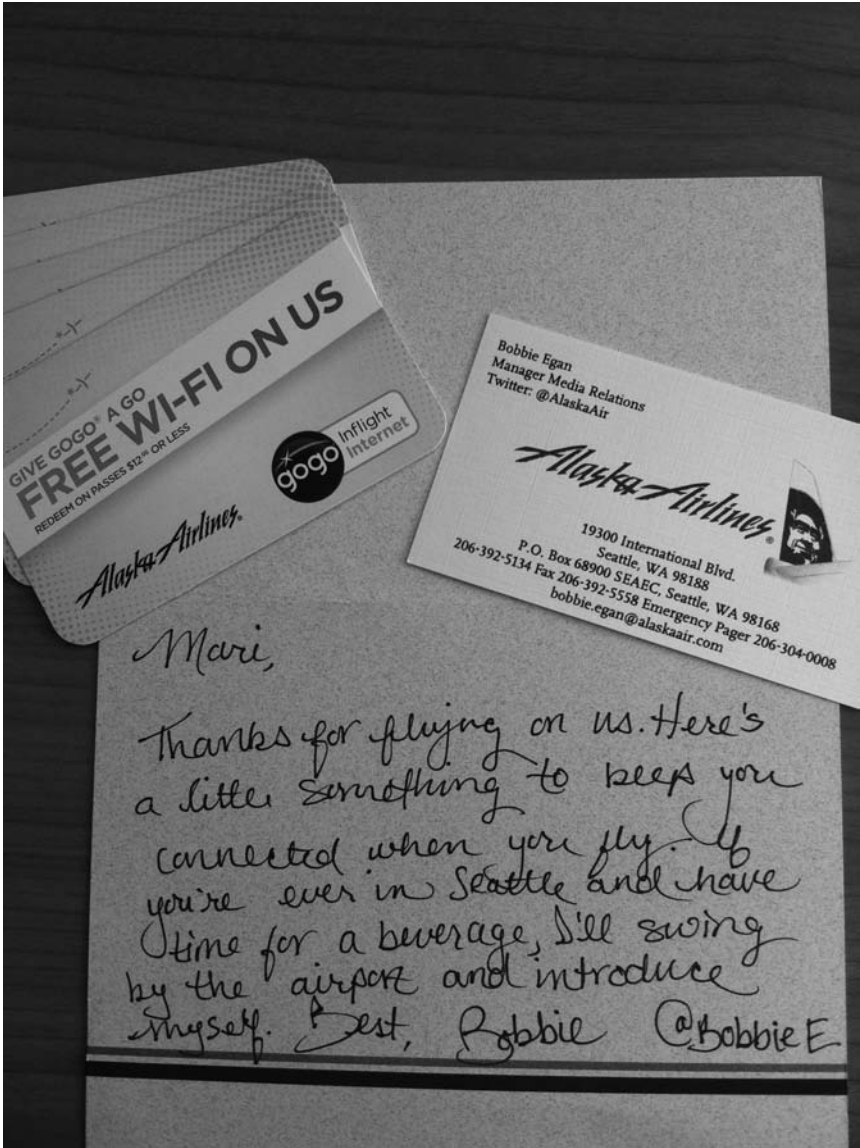 GIVE GOGO® A GO
FREE WI-FI ON US
REDEEM ON PASSES $12.95 OR LESS
gogo Inflight
Internet
Alaska Airlines®
Bobbie Egan
Manager Media Relations
Twitter: @AlaskaAir
Alaska Airlines®
19300 International Blvd.
Seattle, WA 98188
P.O. Box 68900 SEAEC, Seattle, WA 98168
206-392-5134 Fax 206-392-5558 Emergency Pager 206-304-0008
bobbie.egan@alaskaair.com
Mari,
Thanks for flying on us. Here's
a little something to keep you
connected when you fly. If
you're ever in Seattle and have
time for a beverage, I'll swing
by the airport and introduce
myself. Best, Bobbie @BobbieE